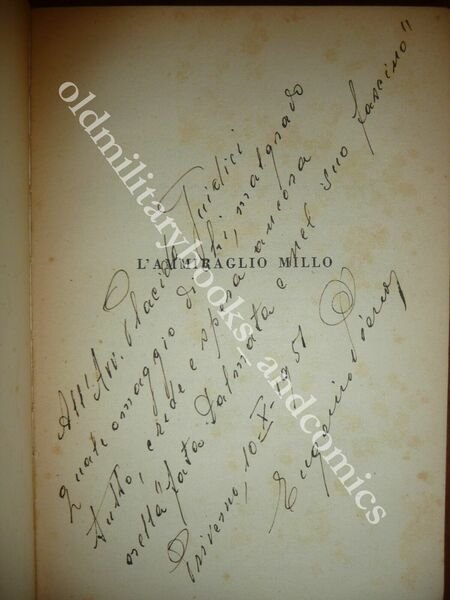 L'AMMIRAGLIO MILLO
All'Avv. Placido Giudici
quale omaggio di chi, malgrado
tutto, crede e spera ancora
nella "fata dalmata e nel suo fascino"
Priverno, 10-X-951
Eugenio
oldmilitarybooks_andcomics